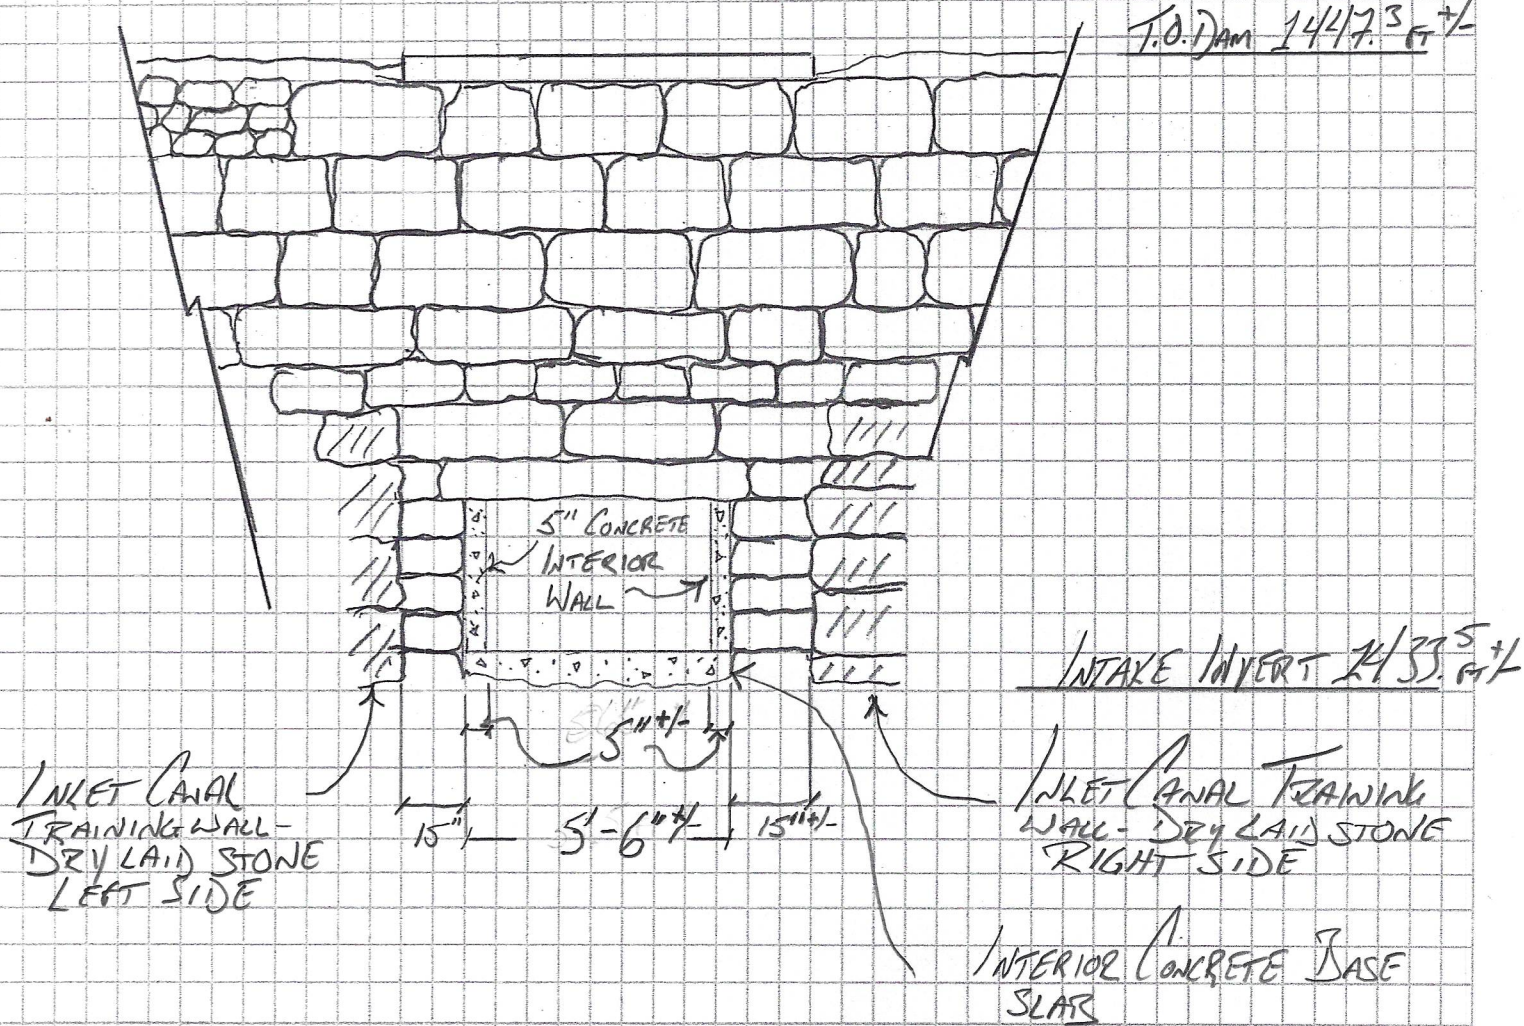 T.O. DAM 1447.3 FT +/-
5" CONCRETE
INTERIOR
WALL
INTAKE INVERT 1433.5 FT +/-
5" +/-
INLET CANAL
TRAINING WALL-
DRY LAID STONE
LEFT SIDE
15"
5'-6" +/-
15" +/-
INLET CANAL TRAINING
WALL- DRY LAID STONE
RIGHT SIDE
INTERIOR CONCRETE BASE
SLAB